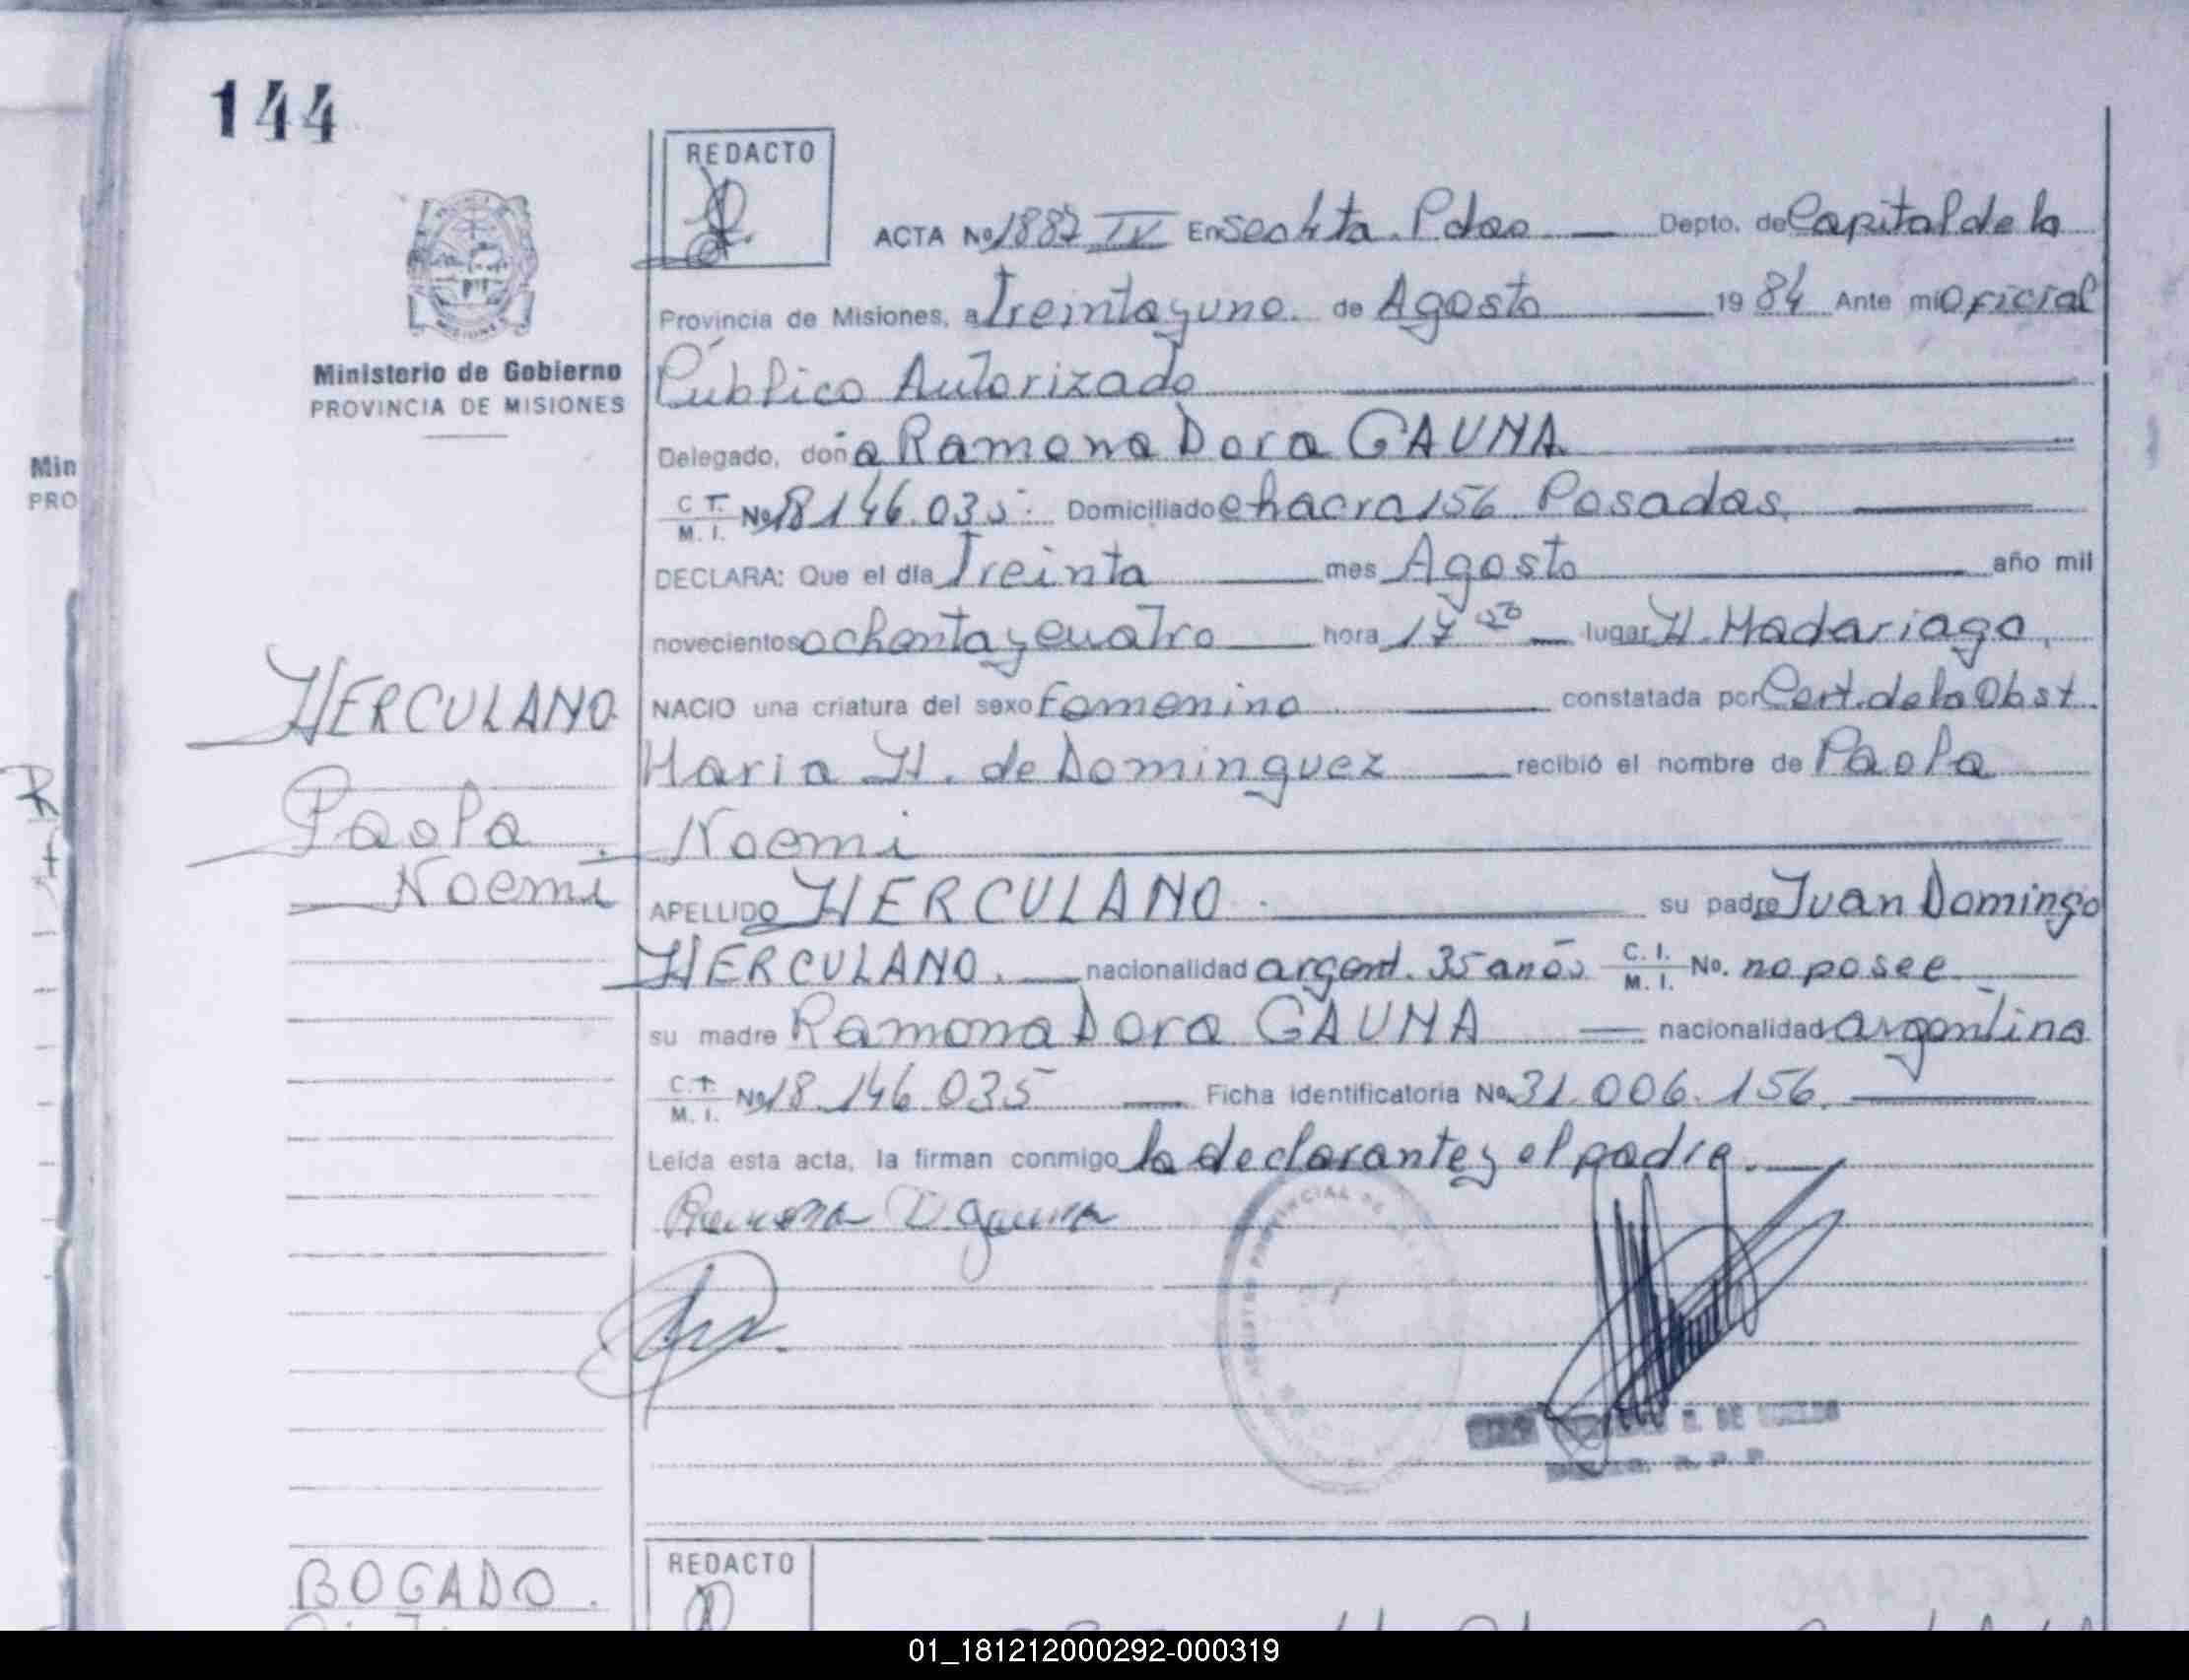 144
REDACTO
ACTA No 1887 IV En Sec 4ta. Pdas Depto. de Capital de la
Provincia de Misiones, a Treinta y uno de Agosto 19 84 Ante mi Oficial
Ministerio de Gobierno
PROVINCIA DE MISIONES
Público Autorizado
Delegado, doña Ramona Dora GAUNA
Min
PRO
C. I. M. I. No 18.146.035. Domiciliado chacra 156 Posadas,
DECLARA: Que el día Treinta mes Agosto año mil
novecientos ochenta y cuatro hora lugar H. Madariaga,
HERCULANO
NACIO una criatura del sexo Femenino constatada por Cert. de la Obst.
Maria H. de Dominguez recibió el nombre de Paola
Paola
Noemi
Noemi
APELLIDO HERCULANO su padre Juan Domingo
HERCULANO. nacionalidad argent. 35 años C. I. M. I. No. no posee
su madre Ramona Dora GAUNA nacionalidad argentina
C. I. M. I. No 18.146.035 Ficha identificatoria No. 31.006.156.
Leída esta acta, la firman conmigo la declarante y el padre.
Ramona D gauna
BOGADO.
REDACTO
01_181212000292-000319